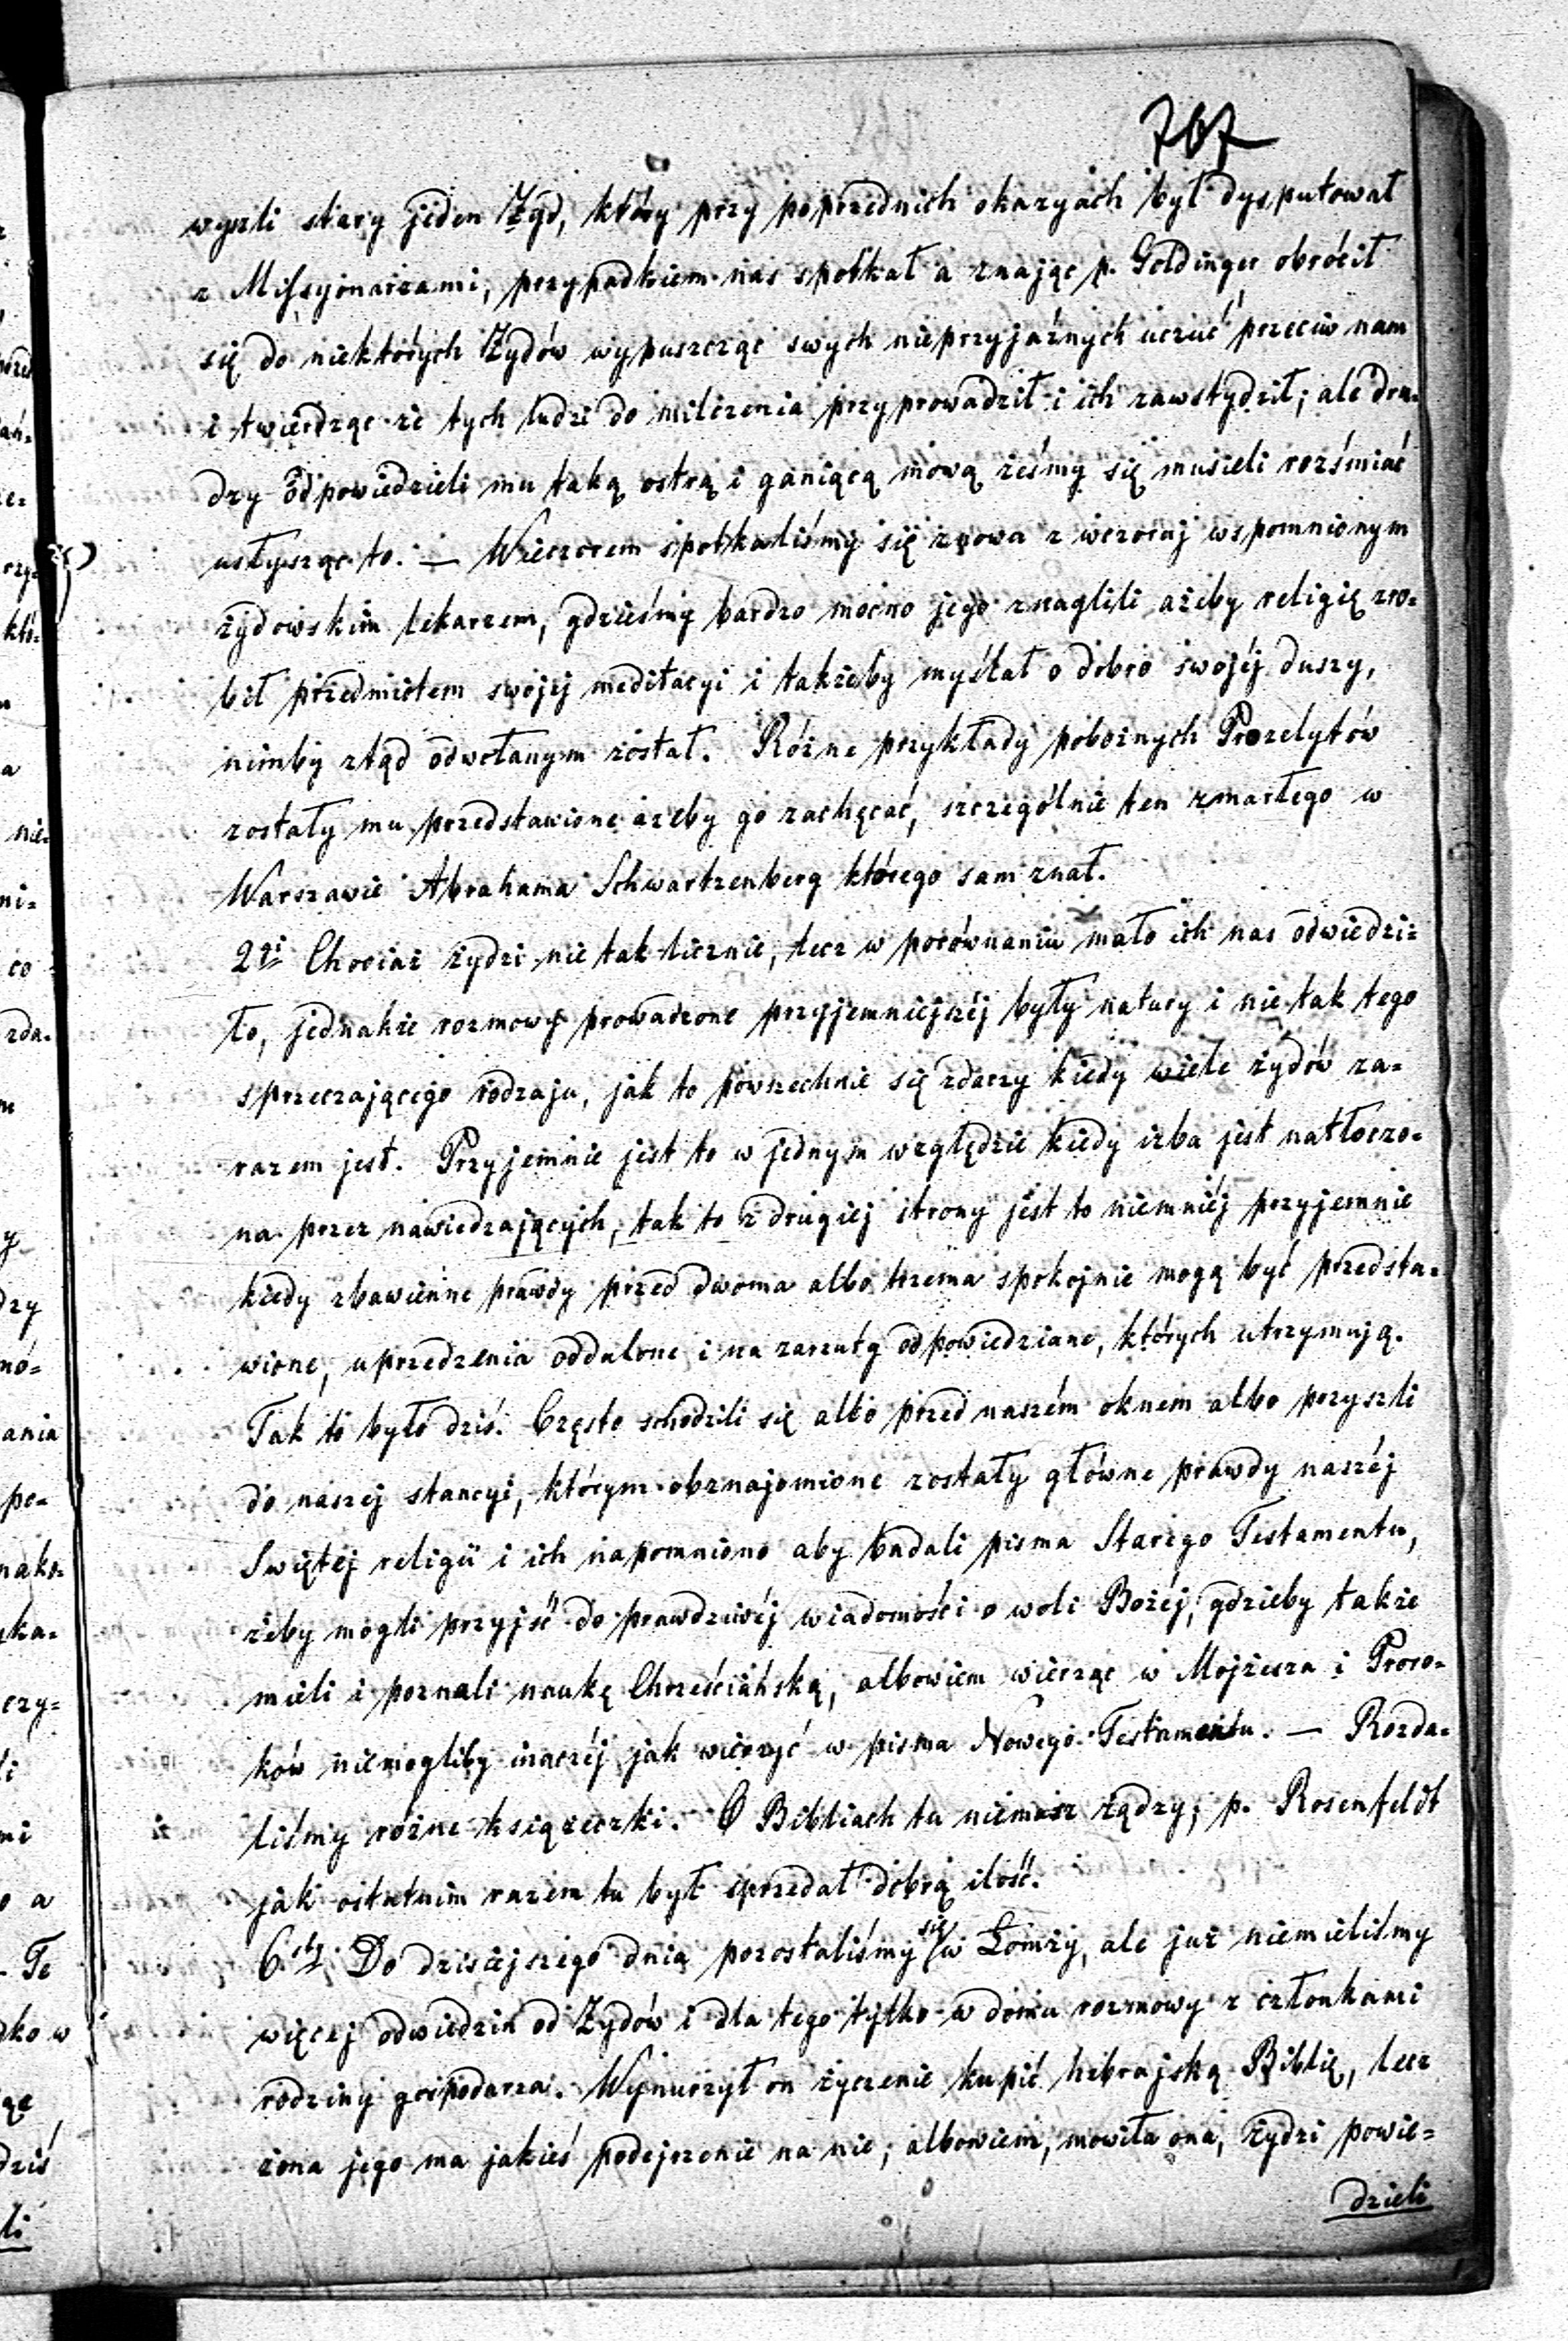 767
wyszli stary jeden Żyd, który przy poprzednich okazyach był dysputował
z Missyonarzami, przypadkiem nas spotkał a znając p. Goldinger obrócił
się do niektórych Żydów wypuszcząc swych nieprzyjaźnych uczuć przeciw nam
i twierdząc że tych ludzi do milczenia przyprowadził i ich zawstydził; ale dru-
dzy odpowiedzieli mu taką ostrą i ganiącą mową żeśmy się musieli rozśmiać
usłysząc to. — Wieczorem spotkaliśmy się znowa z wczoraj wspomnionym
żydowskim lekarzem, gdzieśmy bardzo mocno jego znaglili ażeby religię zro-
bił przedmiotem swojej meditacyi i takżeby myślał o dobro swojéj duszy,
nimby ztąd odwołanym został. Różne przykłady pobożnych Prozelytów
zostały mu przedstawione ażeby go zachęcać, szczególnie ten zmarłego w
Warszawie Abrahama Schwartzenberg którego sam znał.
2gi Chociaż żydzi nie tak licznie, lecz w porównaniu mało ich nas odwiedzi-
ło, jednakże rozmowy prowadzone przyjemniejszéj były natury i nie tak tego
sprzeczającego rodzaju, jak to powszechnie się zdarzy kiedy wiele żydów za-
razem jest. Przyjemnie jest to w jednym względzie kiedy izba jest natłoczo-
na przez nawiedzających, tak to z drugiej strony jest to niemniéj przyjemnie
kiedy zbawienne prawdy przed dwoma albo trzema spokojnie mogą być przedsta-
wione, uprzedzenia oddalone i na zarzuty odpowiedziane, których utrzymują.
Tak to było dziś. Często schodzili się albo przed naszém oknem albo przyszli
do naszej stancyi, którym obznajomione zostały główne prawdy naszéj
Swiętej religii i ich napomniono aby badali pisma Starego Testamentu,
żeby mogli przyjść do prawdziwéj wiadomości o woli Bożéj, gdzieby także
mieli i poznali naukę Chrześciańską, albowiem wierząc w Mojżesza i Proro-
ków niemogliby inaczéj jak wierzyć w pisma Nowego Testamentu. — Rozda-
liśmy różne książeczki. O Bibliach tu niemasz żądzy; p. Rosenfeldt
jak ostatnim razem tu był sprzedał dobrą ilość.
6sty. Do dzisiejszego dnia pozostaliśmy się w Łomży, ale już niemieliśmy
więcej odwiedzin od Żydów i dla tego tylko w domu rozmowy z członkami
rodziny gospodarza. Wynurzył on życzenie kupić hebrajską Biblię, lecz
żona jego ma jakieś podejrzenie na nie; albowiem, mowiła ona, żydzi powie-
dzieli